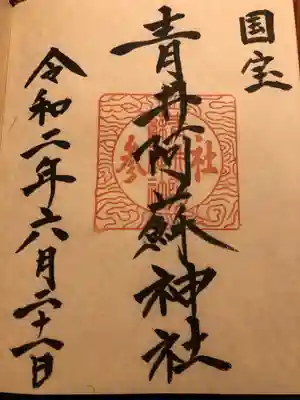 国宝
青井阿蘇神社
参社
令和二年六月二十一日